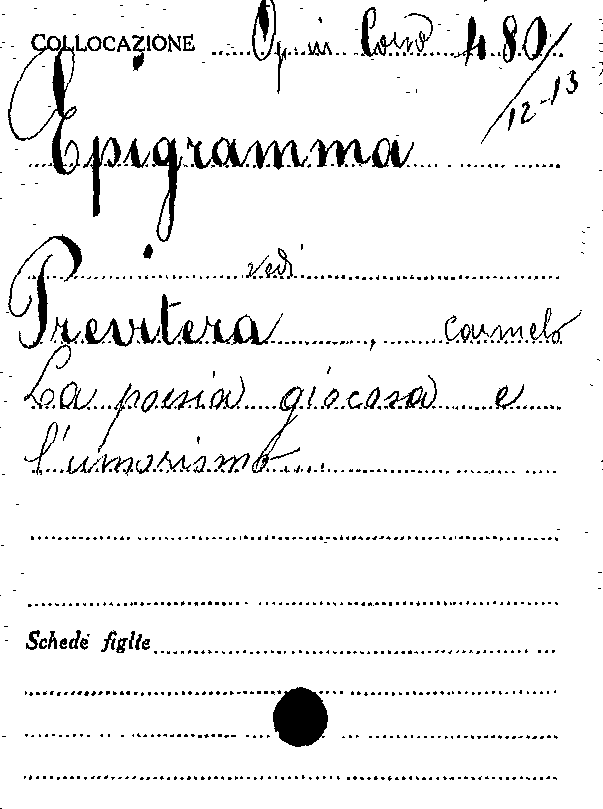 COLLOCAZIONE Op in Corso 480/
12-13
Epigramma
vedi
Previtera, Carmelo
La poesia giocosa e
l'umorismo....
Schede figlie